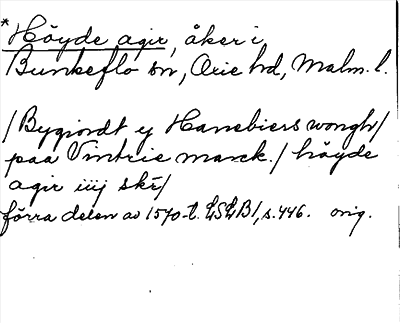 *Höyde agir, åker i
Bunkeflo sn, Oxie hd, Malm. l.
/Bygiordt ej Hansbiers wongh/
paa Vintrie marck./ höyde
agir iiij skr/
förra delen av 1570-t. LSLB1, s. 446. orig.